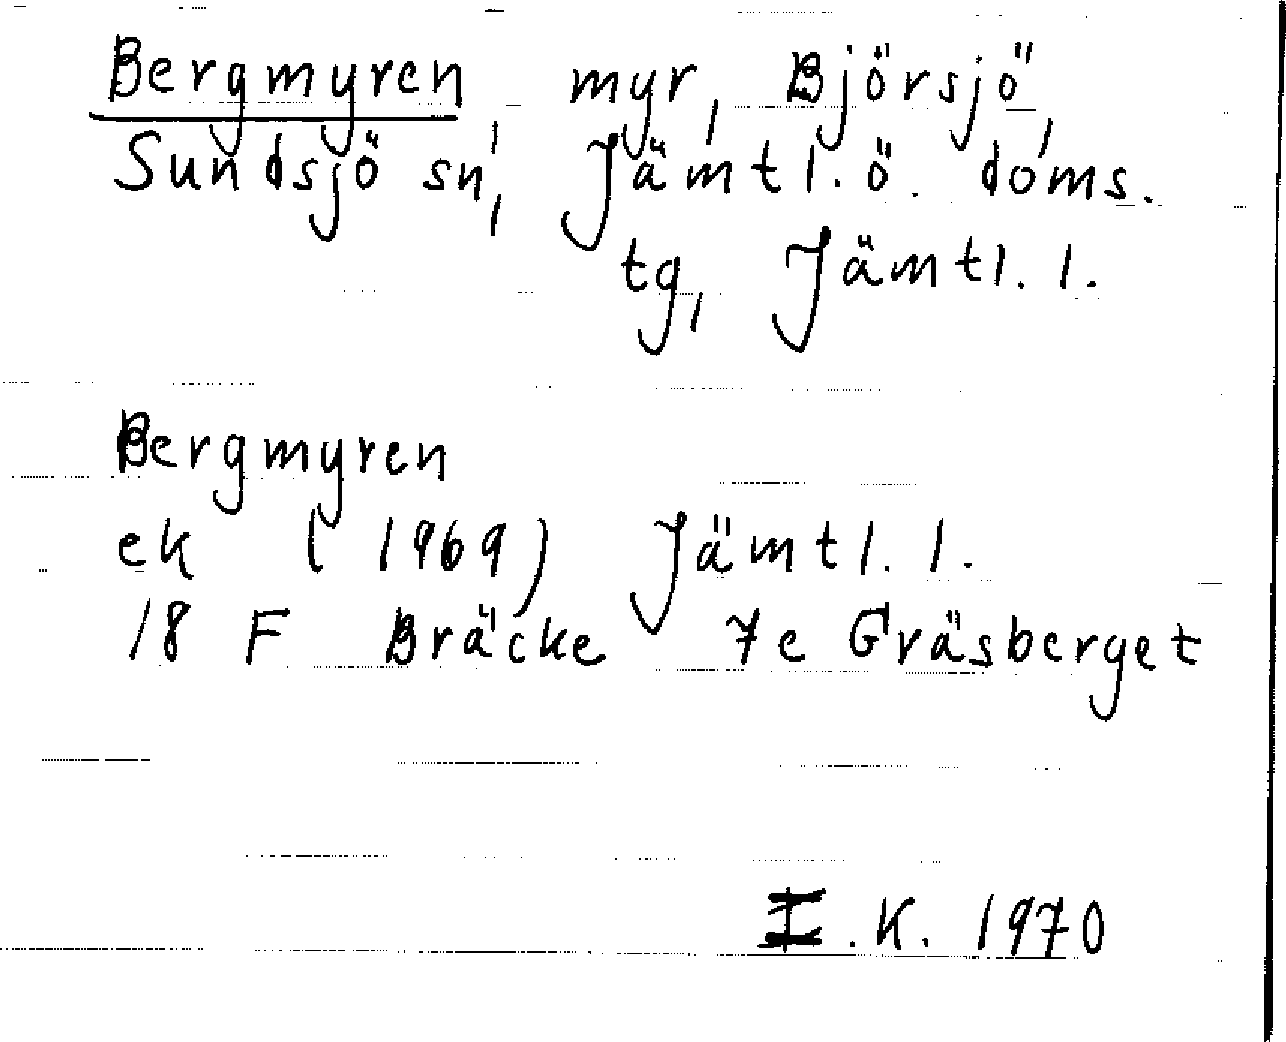 Bergmyren, myr, Björsjö,
Sundsjö sn, Jämtl. ö. doms.
tg, Jämtl. l.
Bergmyren
ek (1969) Jämtl. l.
18 F Bräcke 7e Gräsberget
I.K. 1970